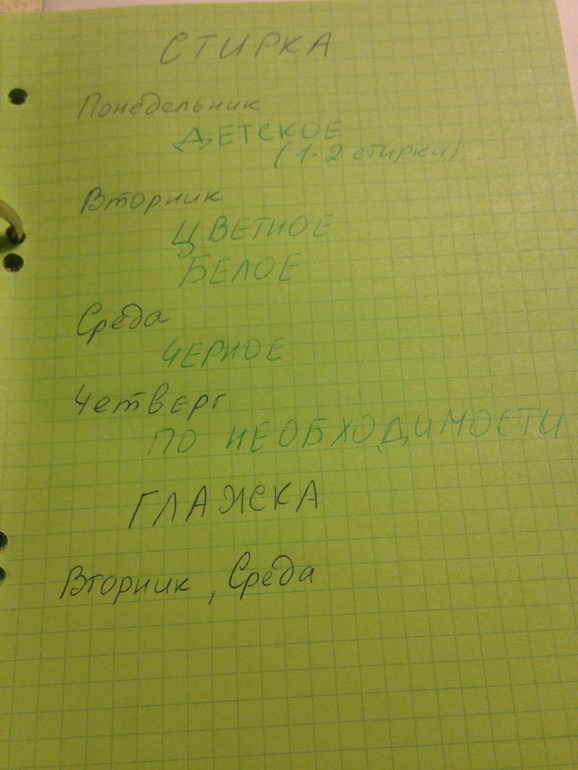 СТИРКА
Понедельник
ДЕТСКОЕ
(1-2 стирки)
Вторник
ЦВЕТНОЕ
БЕЛОЕ
Среда
ЧЕРНОЕ
Четверг
ПО НЕОБХОДИМОСТИ
ГЛАЖКА
Вторник, Среда